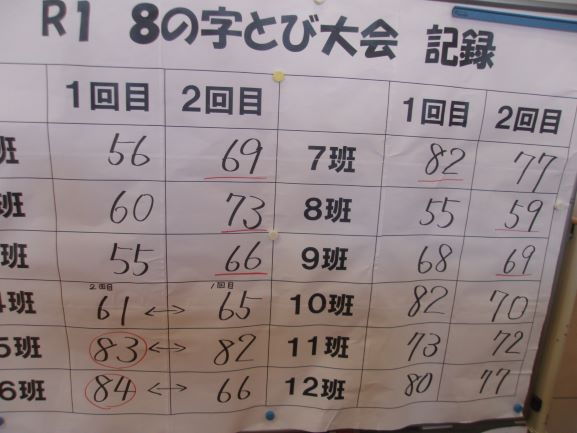 R1 8の字とび大会 記録
1回目 2回目 1回目 2回目
班 56 69 7班 82 77
班 60 73 8班 55 59
班 55 66 9班 68 69
2回目 1回目
4班 61 ←→ 65 10班 82 70
5班 83 ←→ 82 11班 73 72
6班 84 ←→ 66 12班 80 77